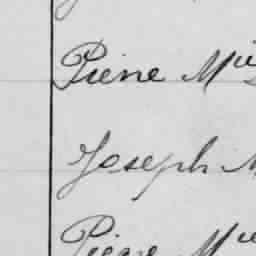 Pierre Mie
Joseph M
Pierre Mie